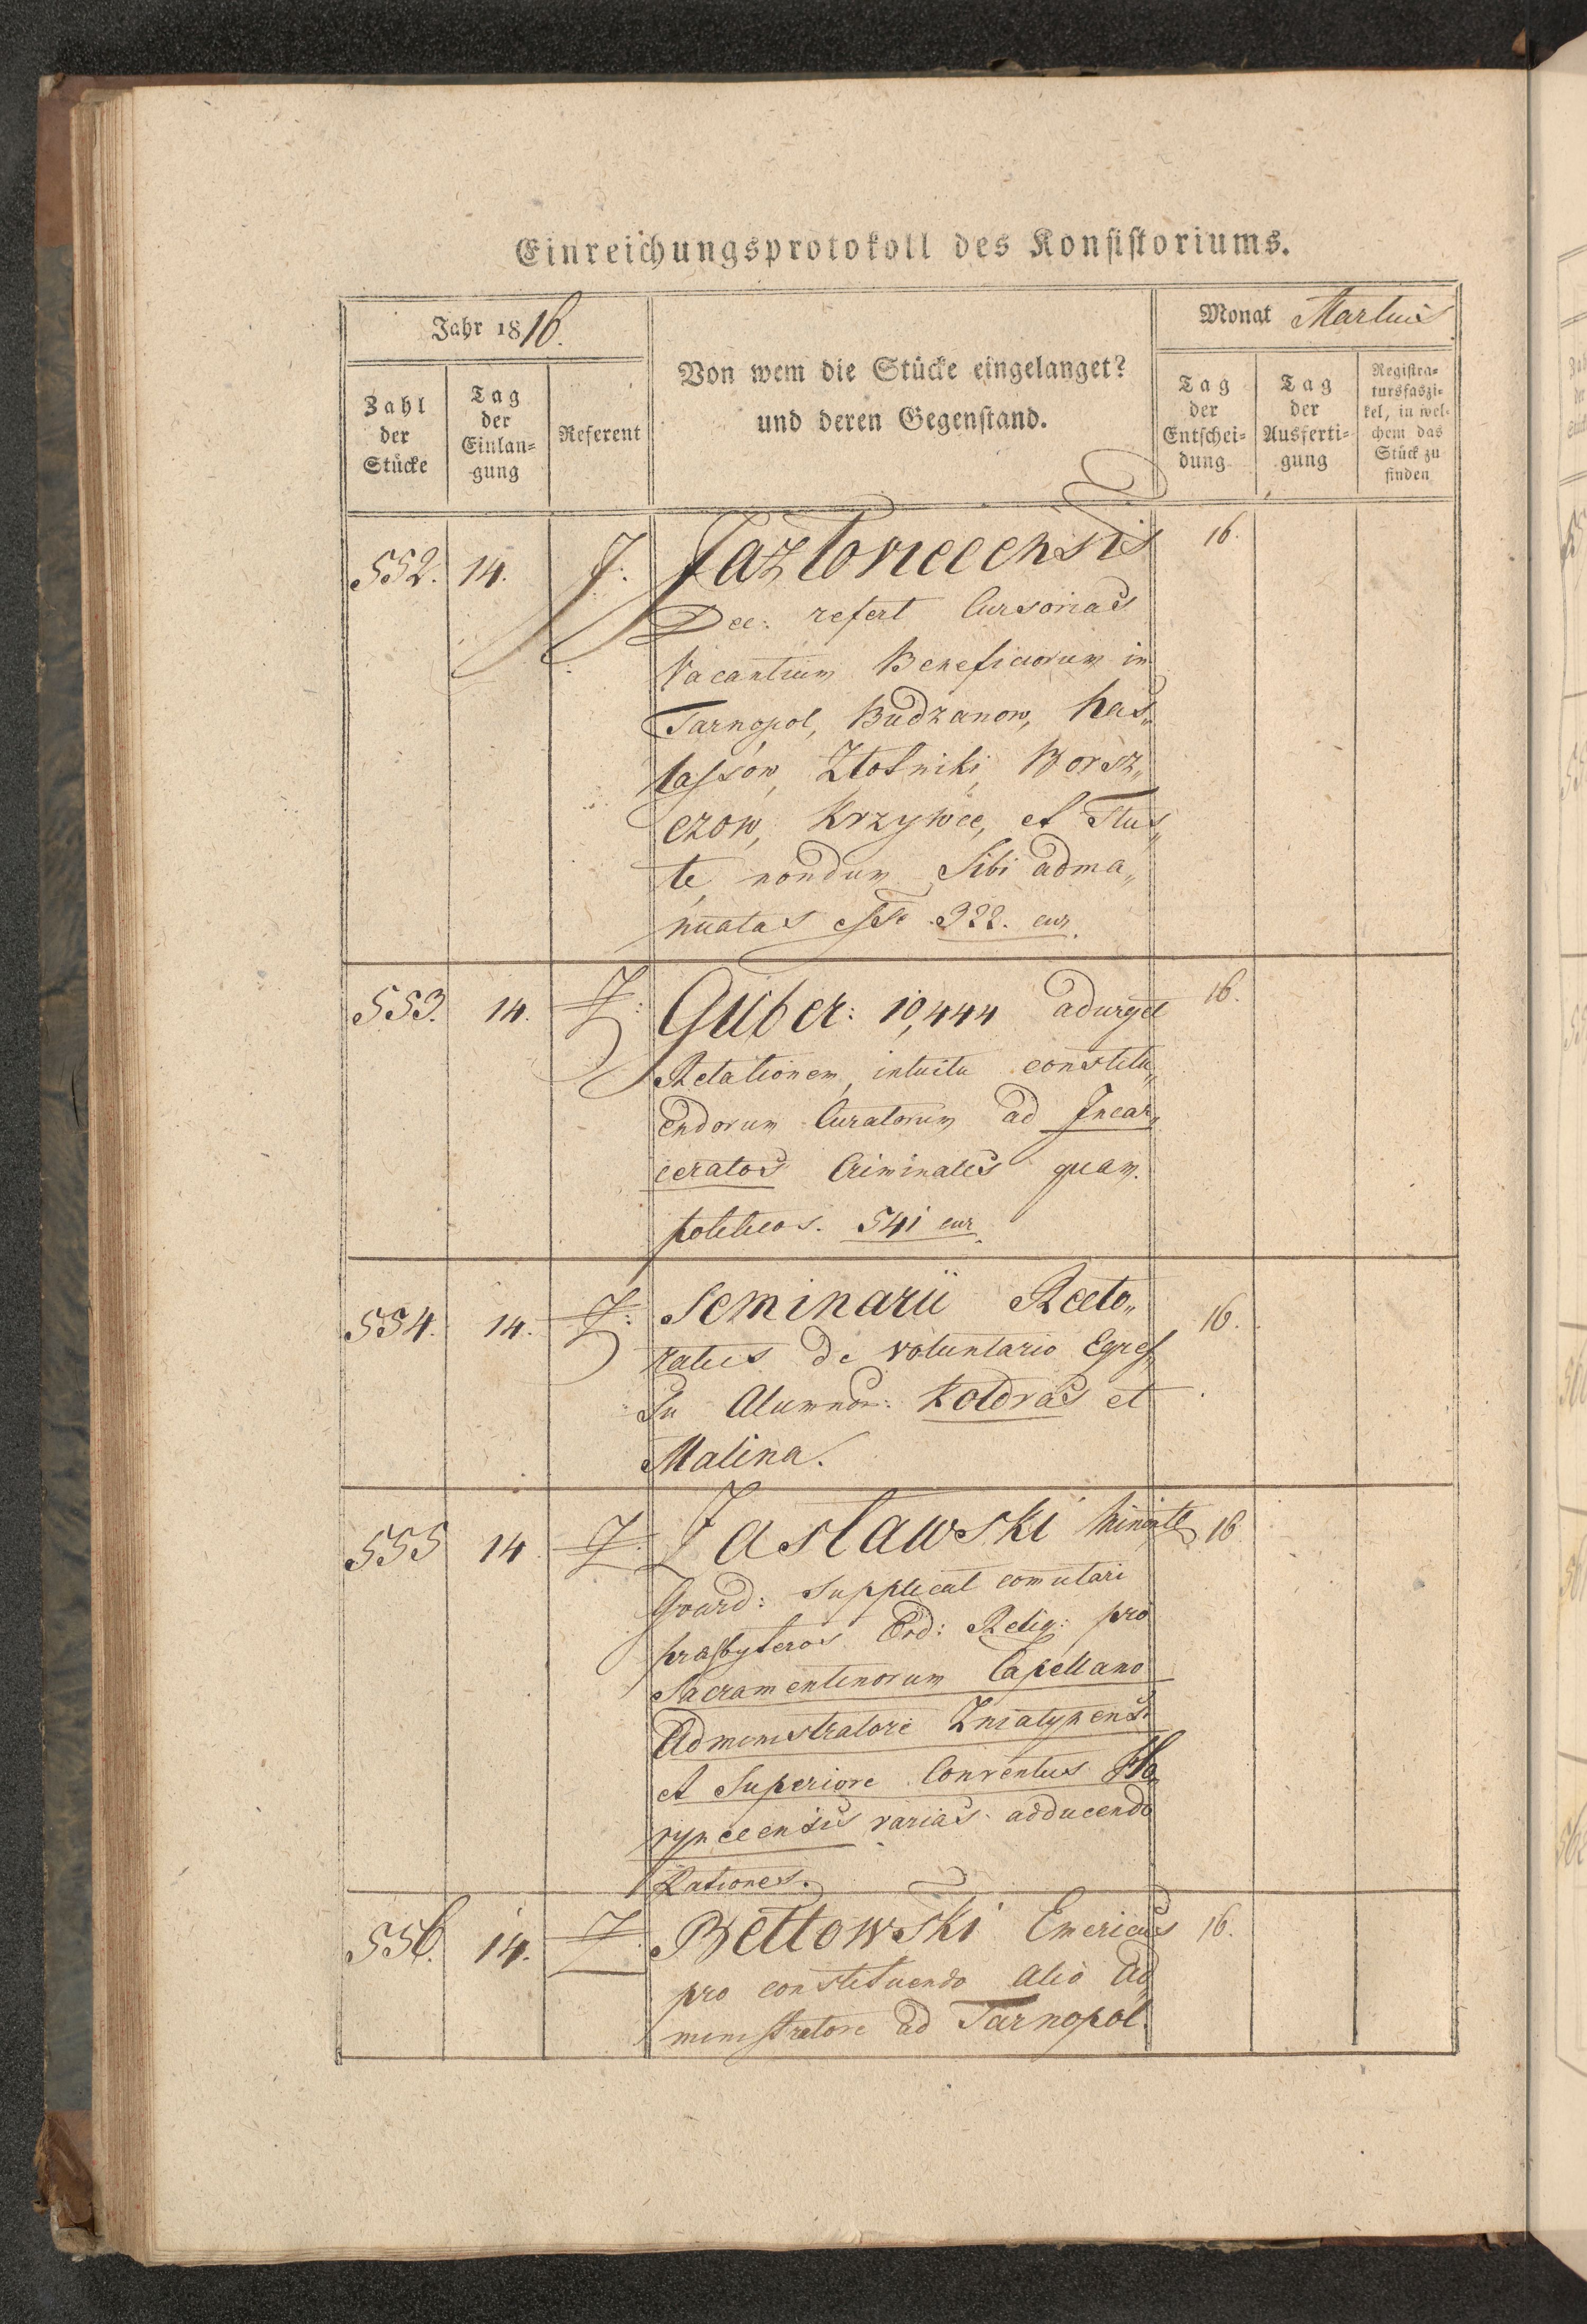 Einreichungsprotokoll des Konsistoriums.
Jahr 1816.
Monat Martius
Zahl der Stücke
Tag der Einlan=gung
Referent
Von wem die Stücke eingelanget?
und deren Gegenstand.
Tag der Entschei=dung
Tag der Ausferti=gung
Registra=tursfaszi=kel, in wel=chem das Stück zu finden
552. 14. J. Jazłovieceensis 16.
Dec: refert Cursorias
Vacantium Beneficiorum in
Tarnopol, Budzanow, Has„
tassow, Złotniki, Borsz„
czow, Krzywce, et Tłus„
te nondum sibi adma„
nuatas esse 922. cur.
553. 14. J: Guber: 10,444 adurget 16.
Relationem, intuitu constitu„
endorum Curatorum ad Incar„
ceratos Criminales quam
politicos. 541 cur.
554. 14. J: Seminarii Recto„ 16.
ratus de voluntario Egres„
su Alumnor: Koldras et
Malina.
555 14 J. Jasławski 16
Guard: supplicat comutari
prasbyteros Ord: Relig: pro
Sacramentinorum Capellano
Administratore Zniatynensi
et Superiore Conventus Ho„
rynceensis varias adducendo
Rationes.
556. 14. J. Bełtowski Emericus 16.
pro constituendo alio Ad„
ministratore ad Tarnopol.